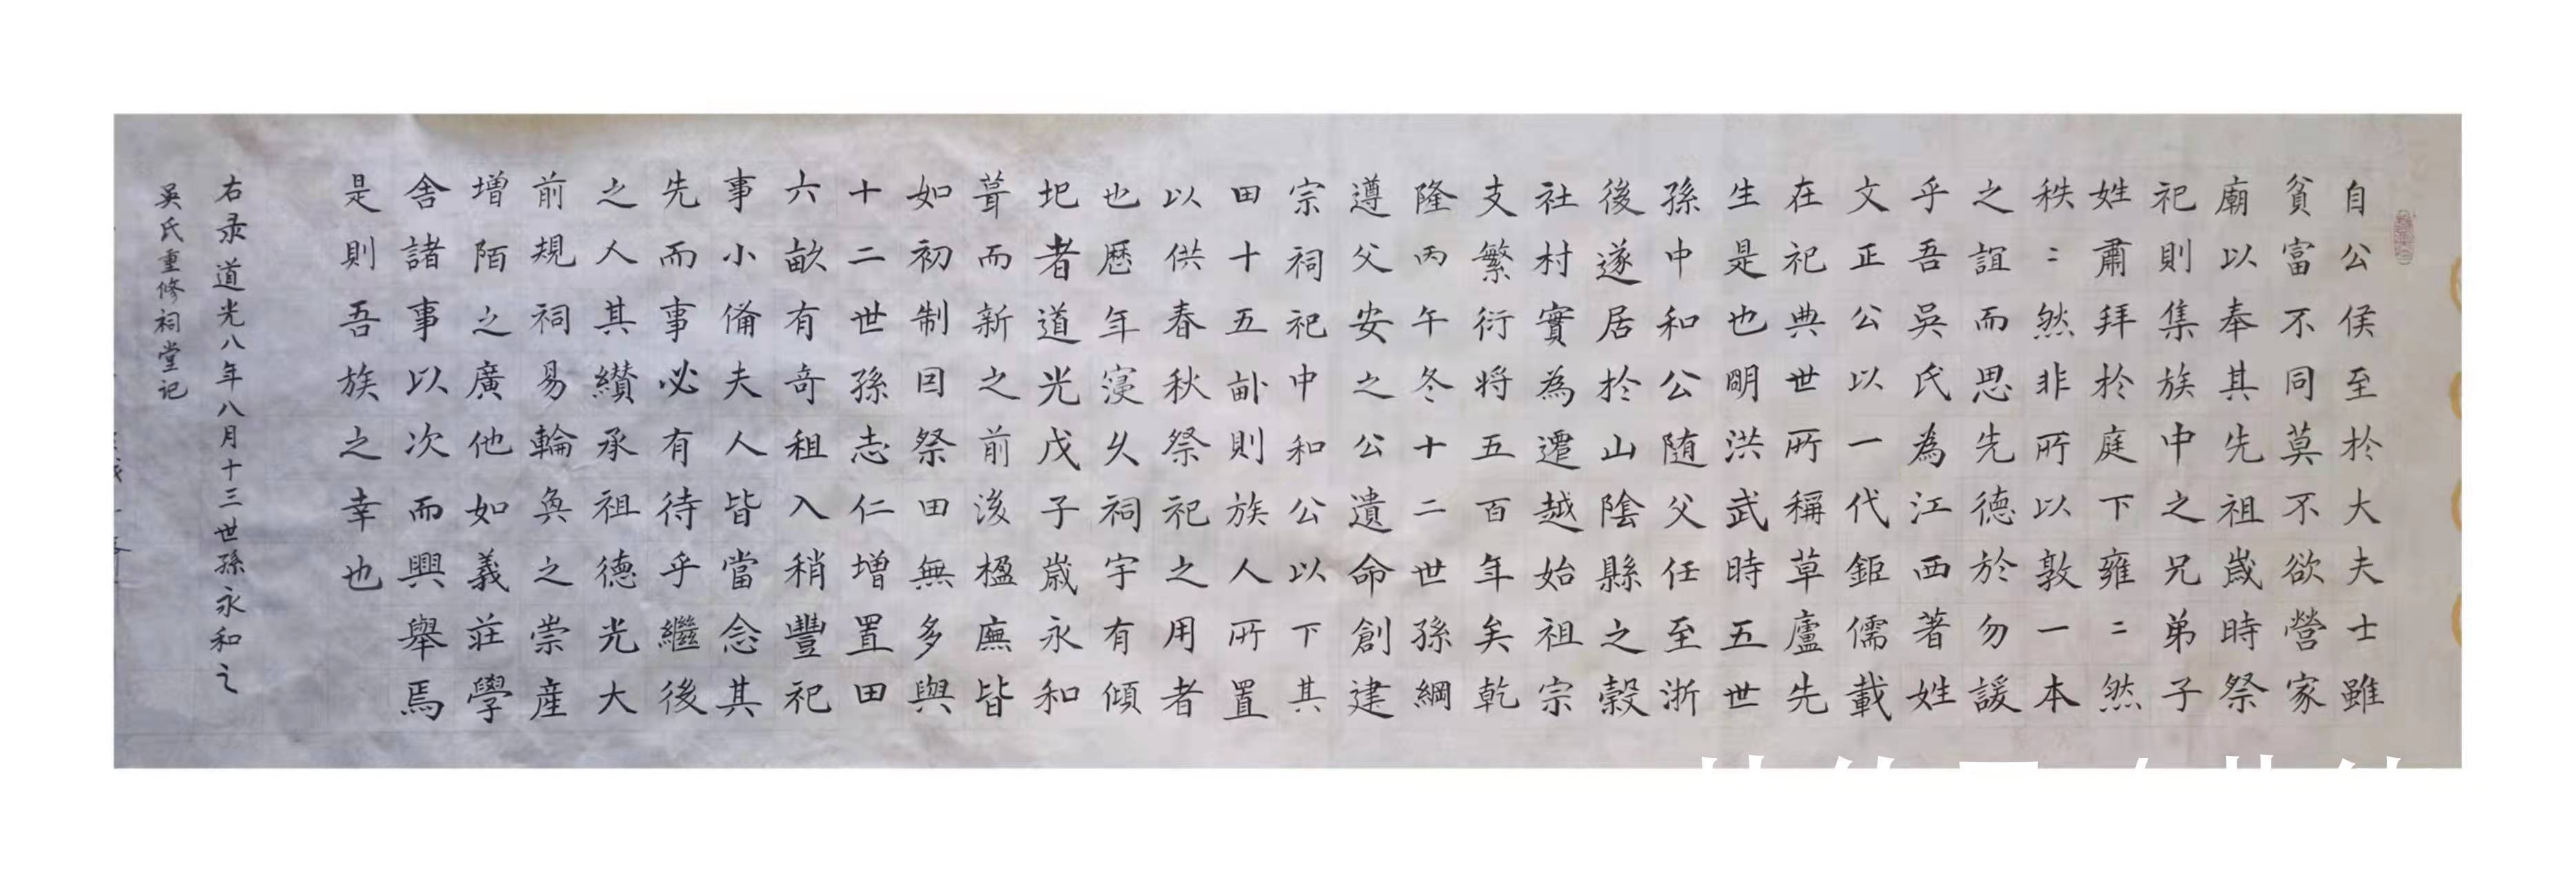 自公侯至於大夫士雖
貧富不同莫不欲營家
廟以奉其先祖歲時祭
祀則集族中之兄弟子
姓肅拜於庭下雍〻然
秩〻然非所以敦一本
之誼而思先德於勿諼
乎吾吳氏為江西著姓
文正公以一代鉅儒載
在祀典世所稱草廬先
生是也明洪武時五世
孫中和公随父任至浙
後遂居於山陰縣之穀
社村實為遷越始祖宗
支繁衍将五百年矣乾
隆丙午冬十二世孫綱
遵父安之公遺命創建
宗祠祀中和公以下其
田十五畝則族人所置
以供春秋祭祀之用者
也歷年寖久祠宇有傾
圮者道光戊子歲永和
葺而新之前後楹廡皆
如初制囙祭田無多與
十二世孫志仁增置田
六畝有奇租入稍豐祀
事小俻夫人皆當念其
先而事必有待乎繼後
之人其纘承祖德光大
前規祠易輪奐之崇産
增陌之廣他如義莊學
舍諸事以次而興舉焉
是則吾族之幸也
右录道光八年八月十三世孫永和之
吳氏重修祠堂记